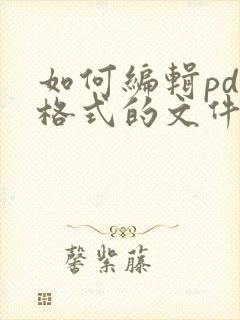 如何编辑pd
格式的文件
馨紫藤